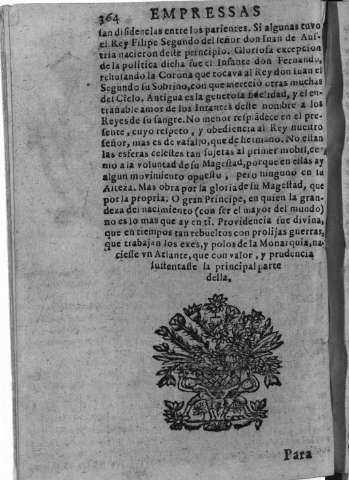 364 EMPRESSAS
san disidencias entre los parientes. Si algunas tuvo
el Rey Filipe Segundo del señor don Iuan de Aus-
tria nacieron deste principio. Gloriosa excepcion
de la politica dicha fue el Infante don Fernando,
rehusando la Corona que tocava al Rey don Iuan el
Segundo su Sobrino, con que mereció otras muchas
del Cielo. Antigua es la generosa fidelidad, y el en-
trañable amor de los Infantes deste nombre a los
Reyes de su sangre. No menor resplãdece en el pre-
sente, cuyo respeto, y obediencia al Rey nuestro
señor, mas es de vasallo, que de hermano. No estan
las esferas celestes tan sujetas al primer mobil, co-
mo a la voluntad de su Magestad, porque en ellas ay
algun movimiento opuesto, pero ninguno en su
Alteza. Mas obra por la gloria de su Magestad, que
por la propria. O gran Principe, en quien la gran-
deza del nacimiento (con ser el mayor del mundo)
no es lo mas que ay en ti. Providencia fue divina,
que en tiempos tan rebueltos con prolijas guerras,
que trabajan los exes, y polos de la Monarquia, na-
ciesse vn Atlante, que con valor, y prudencia
sustentasse la principal parte
della.
Para